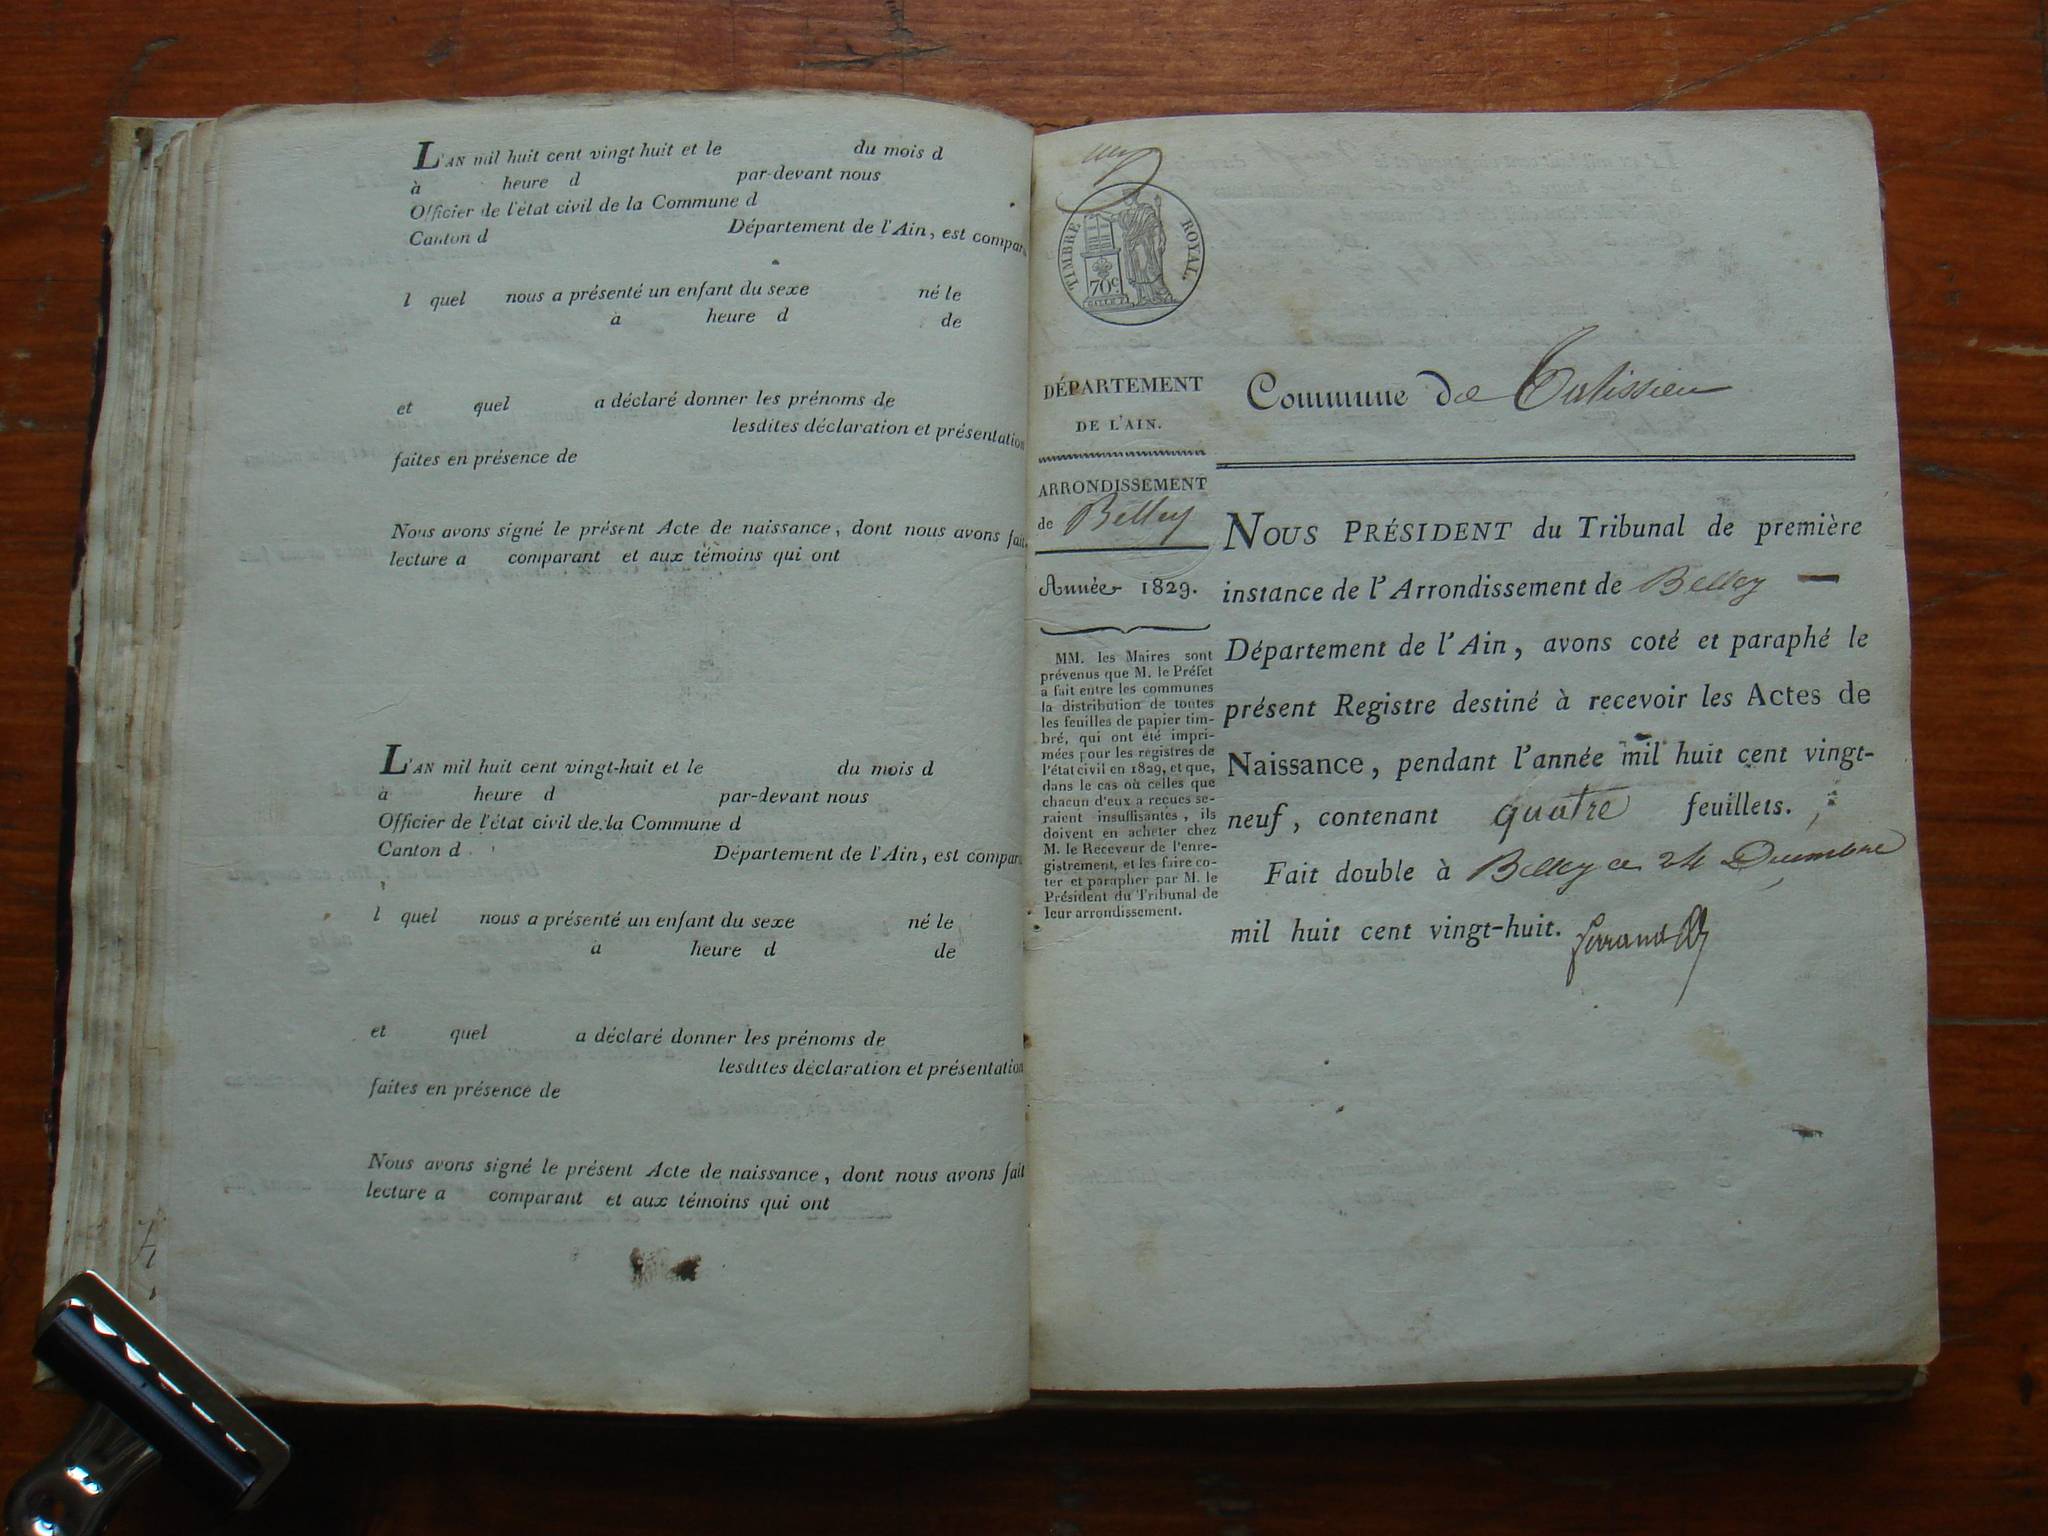 L'AN mil huit cent vingt huit et le du mois d
à heure d par-devant nous
Officier de l'état civil de la Commune d
Canton d Département de l'Ain, est compar
l quel nous a présenté un enfant du sexe né le
à heure d de
et quel a déclaré donner les prénoms de
lesdites déclaration et présentation
faites en présence de
Nous avons signé le présent Acte de naissance, dont nous avons fait
lecture a comparant et aux témoins qui ont
L'AN mil huit cent vingt-huit et le du mois d
à heure d par-devant nous
Officier de l'état civil de la Commune d
Canton d Département de l'Ain, est compar
l quel nous a présenté un enfant du sexe né le
à heure d de
et quel a déclaré donner les prénoms de
lesdites déclaration et présentation
faites en présence de
Nous avons signé le présent Acte de naissance, dont nous avons fait
lecture a comparant et aux témoins qui ont
TIMBRE ROYAL.
70c.
DÉPARTEMENT
DE L'AIN.
ARRONDISSEMENT
de Belley
Année 1829.
MM. les Maires sont
prévenus que M. le Préfet
a fait entre les communes
la distribution de toutes
les feuilles de papier tim-
bré, qui ont été impri-
mées pour les registres de
l'état civil en 1829, et que,
dans le cas où celles que
chacun d'eux a reçues se-
raient insuffisantes, ils
doivent en acheter chez
M. le Receveur de l'enre-
gistrement, et les faire co-
ter et parapher par M. le
Président du Tribunal de
leur arrondissement.
Commune de Talissieu
NOUS PRÉSIDENT du Tribunal de première
instance de l'Arrondissement de Belley
Département de l'Ain, avons coté et paraphé le
présent Registre destiné à recevoir les Actes de
Naissance, pendant l'année mil huit cent vingt-
neuf, contenant quatre feuillets.
Fait double à Belley ce 24 Décembre
mil huit cent vingt-huit. Ferrand